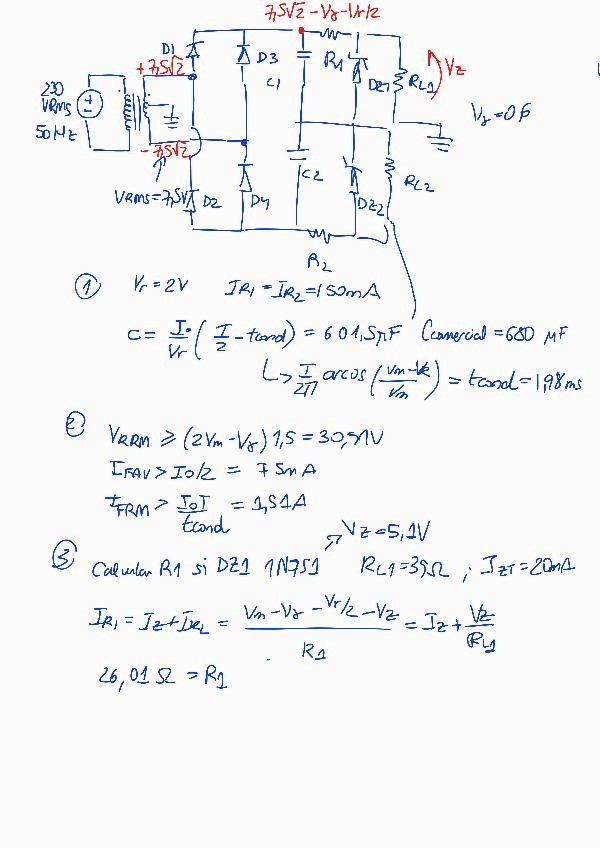 7,5√2 - Vγ - Vr/2
D1
D3
C1
R1
DZ1
RL1
Vz
Vγ = 0,6
+7,5√2
230
VRMS
50 Hz
-7,5√2
VRMS = 7,5V
D2
D4
C2
DZ2
RL2
R2
① Vr = 2V IR1 = IR2 = 150mA
C = Io/Vr (T/2 - tcond) = 601,5μF Ccomercial = 680 μF
↳ T/2π arcos (Vm-Vr/Vm) = tcond = 1,98 ms
② VRRM ≥ (2Vm - Vγ) 1,5 = 30,91V
IFAV > Io/2 = 75mA
IFRM > IoT/tcond = 1,51A
↗ Vz = 5,1V
③ Calcular R1 si DZ1 1N751 RL1 = 39Ω ; IZT = 20mA
IR1 = Iz + IRL = Vm - Vγ - Vr/2 - Vz / R1 = Iz + Vz/RL1
26,01 Ω = R1